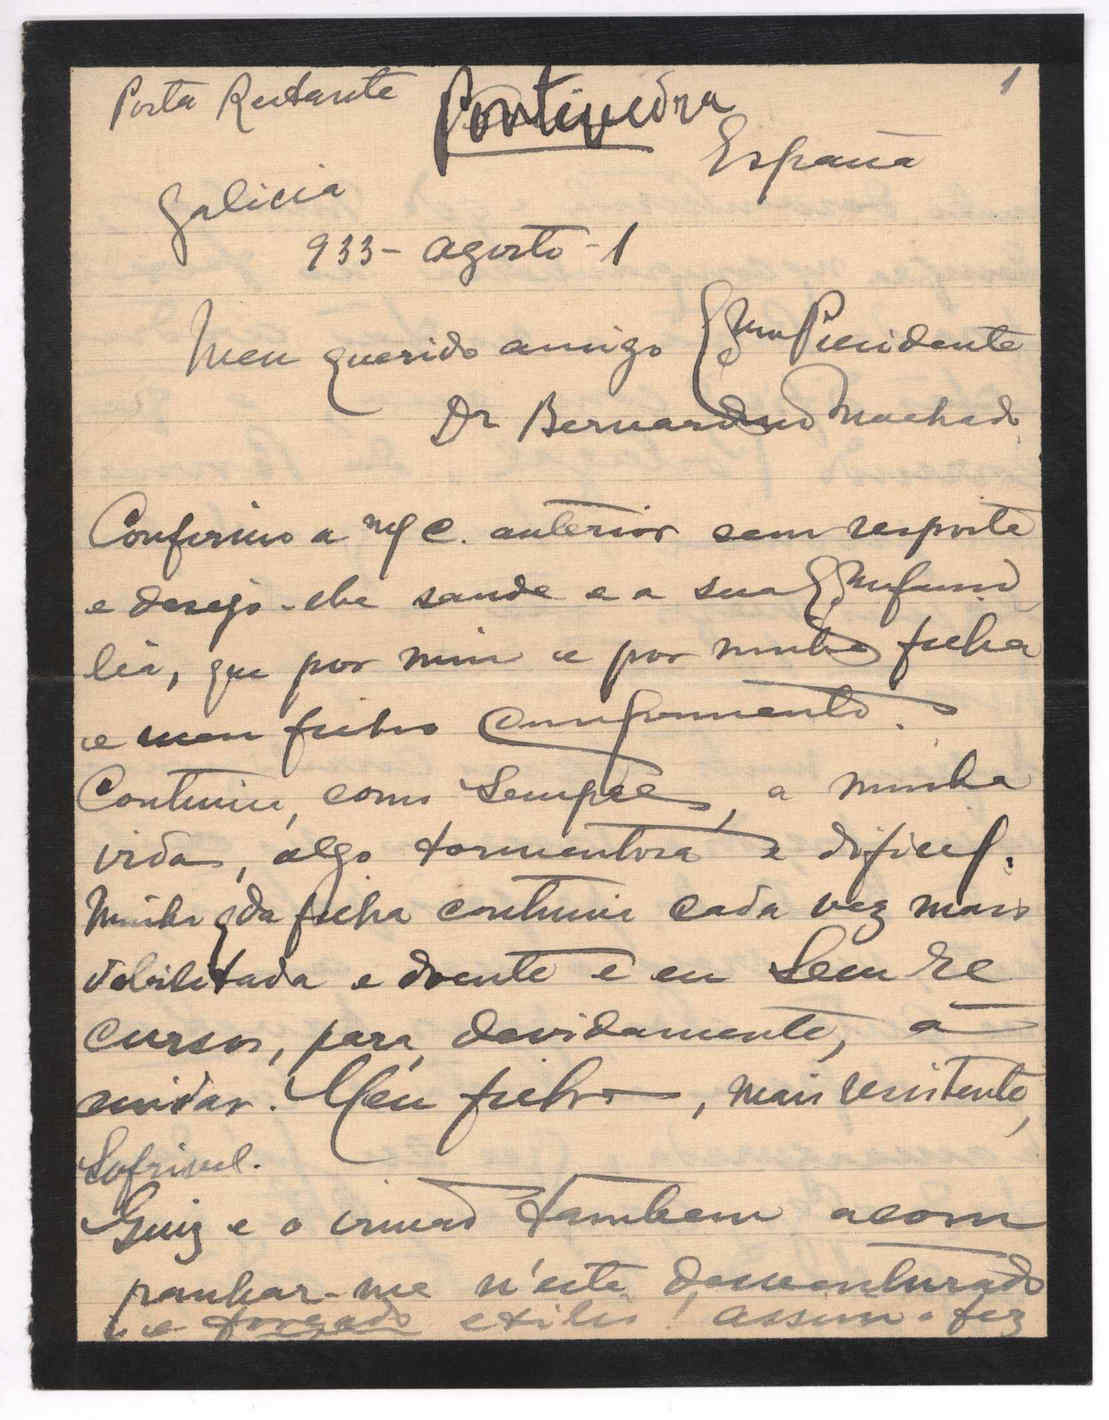 Posta Restante Pontivedra 1
España
Galicia
933 - agosto - 1
Meu querido amigo Exmo Presidente
Dr Bernardino Machado
Confirmo a mª c. anterior sem resposta
e desejo-lhe saude e a sua Exma fami
lia, que por mim e por minha filha
e meu filho cumprimento.
Continua, como sempre, a minha
vida, algo tormentosa e dificil.
Minha qda filha continua cada vez mais
debilitada e doente e eu sem re
cursos, para, devidamente, a
cuidar. Meu filho, mais resistente,
sofrivel.
Quiz e o irmão tambem acom
panhar-me n'este desventurado
e forçado exilio! assim o fez